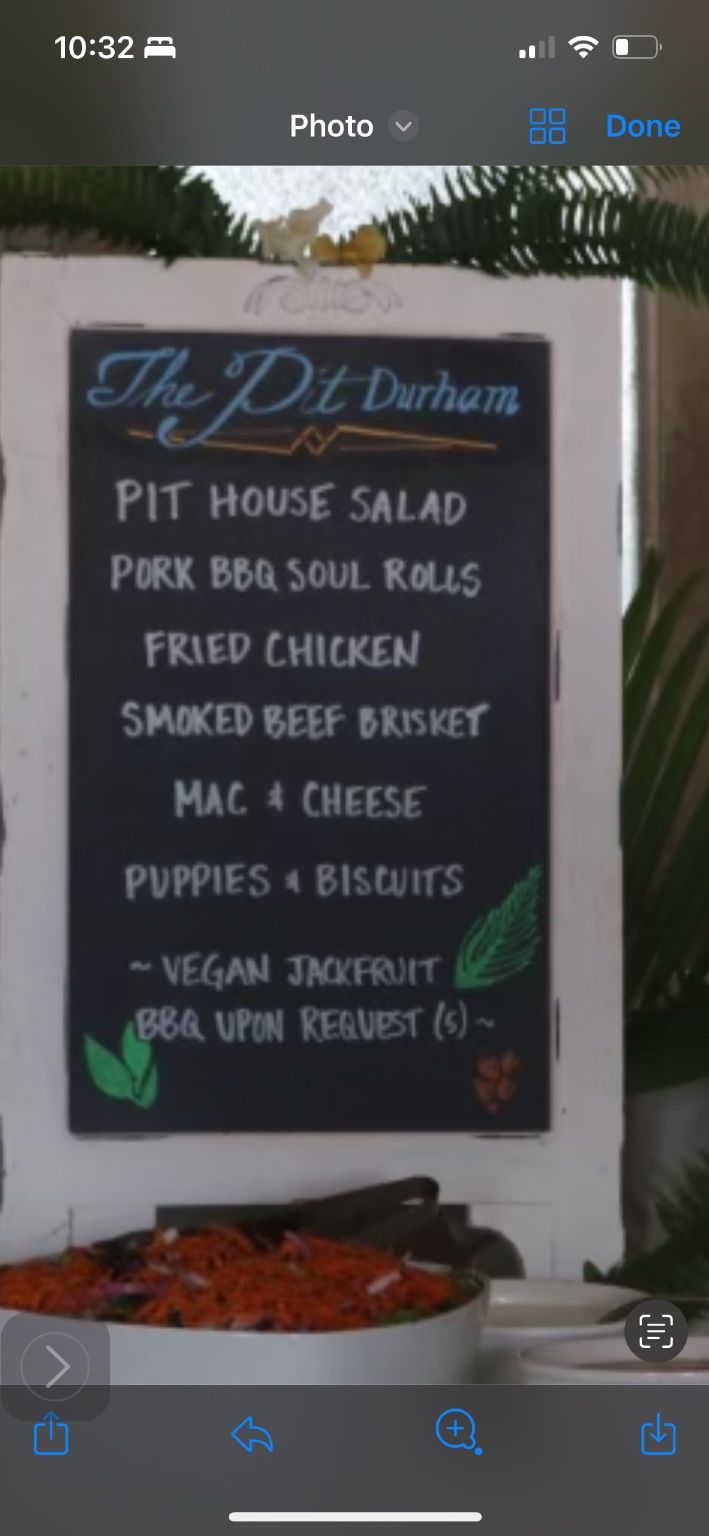 10:32
Photo
Done
The Pit Durham
PIT HOUSE SALAD
PORK BBQ SOUL ROLLS
FRIED CHICKEN
SMOKED BEEF BRISKET
MAC & CHEESE
PUPPIES & BISCUITS
~ VEGAN JACKFRUIT
BBQ UPON REQUEST (S) ~